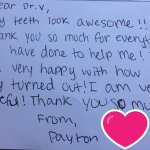 ear Dr. V,
y teeth look awesome!!
ank you so much for everyt
have done to help me!
very happy with how
y turned out! I am ve
ful! Thank you so mu
From,
Payton